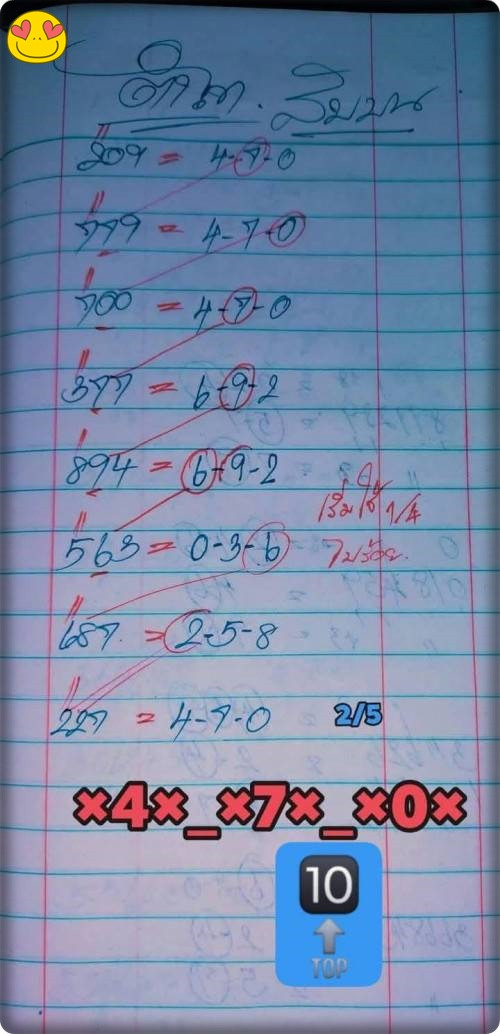 สิบบน
209 = 4-7-0
779 = 4-7-0
700 = 4-7-0
377 = 6-9-2
894 = 6-9-2
เริ่มใช้ 1/4
563 = 0-3-6
ในร้อย
687 = 2-5-8
227 = 4-7-0
2/5
×4×_×7×_×0×
10
TOP